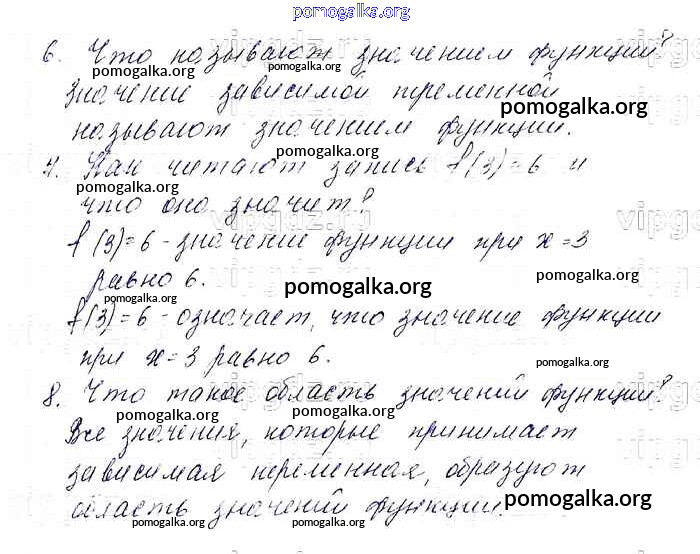 pomogalka.org
6. Что называют значением функции?
pomogalka.org pomogalka.org
значение зависимой переменной
pomogalka.org
называют значением функции.
pomogalka.org
7. Как читают запись f(3)=6 и
pomogalka.org
что она значит?
f(3)=6 - значение функции при x=3
равно 6.
pomogalka.org
pomogalka.org
pomogalka.org
f(3)=6 - означает, что значение функции
при x=3 равно 6.
pomogalka.org
8. Что такое область значений функции?
pomogalka.org pomogalka.org
Все значения, которые принимает
зависимая переменная, образуют
область значений функции.
pomogalka.org
pomogalka.org pomogalka.org